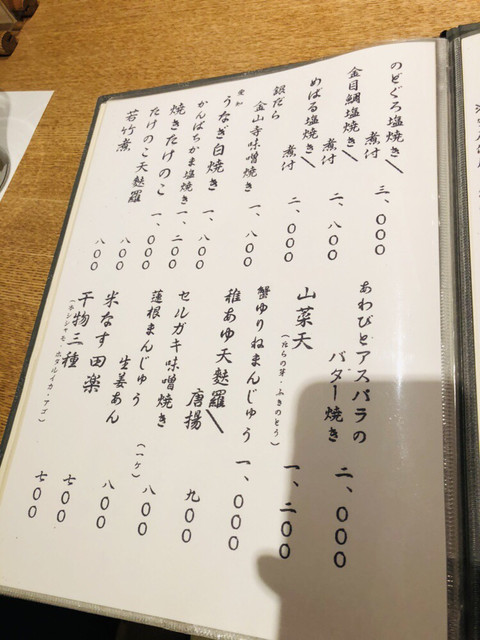 のどぐろ塩焼き/
煮付
三、〇〇〇
金目鯛塩焼き/
煮付
二、八〇〇
めばる塩焼き/
煮付
二、〇〇〇
銀だら
金山寺味噌焼き
一、八〇〇
愛知
うなぎ白焼き
一、八〇〇
かんぱちかま塩焼き
一、二〇〇
焼きたけのこ
一、〇〇〇
たけのこ天麩羅
八〇〇
若竹煮
八〇〇
あわびとアスパラの
バター焼き
二、〇〇〇
山菜天
(たらの芽・ふきのとう)
一、二〇〇
蟹ゆりねまんじゅう
一、〇〇〇
稚あゆ天麩羅/
唐揚
九〇〇
セルガキ味噌焼き
(一ケ)
八〇〇
蓮根まんじゅう
生姜あん
八〇〇
米なす田楽
七〇〇
干物三種
(本シシャモ・ホタルイカ・アゴ)
七〇〇